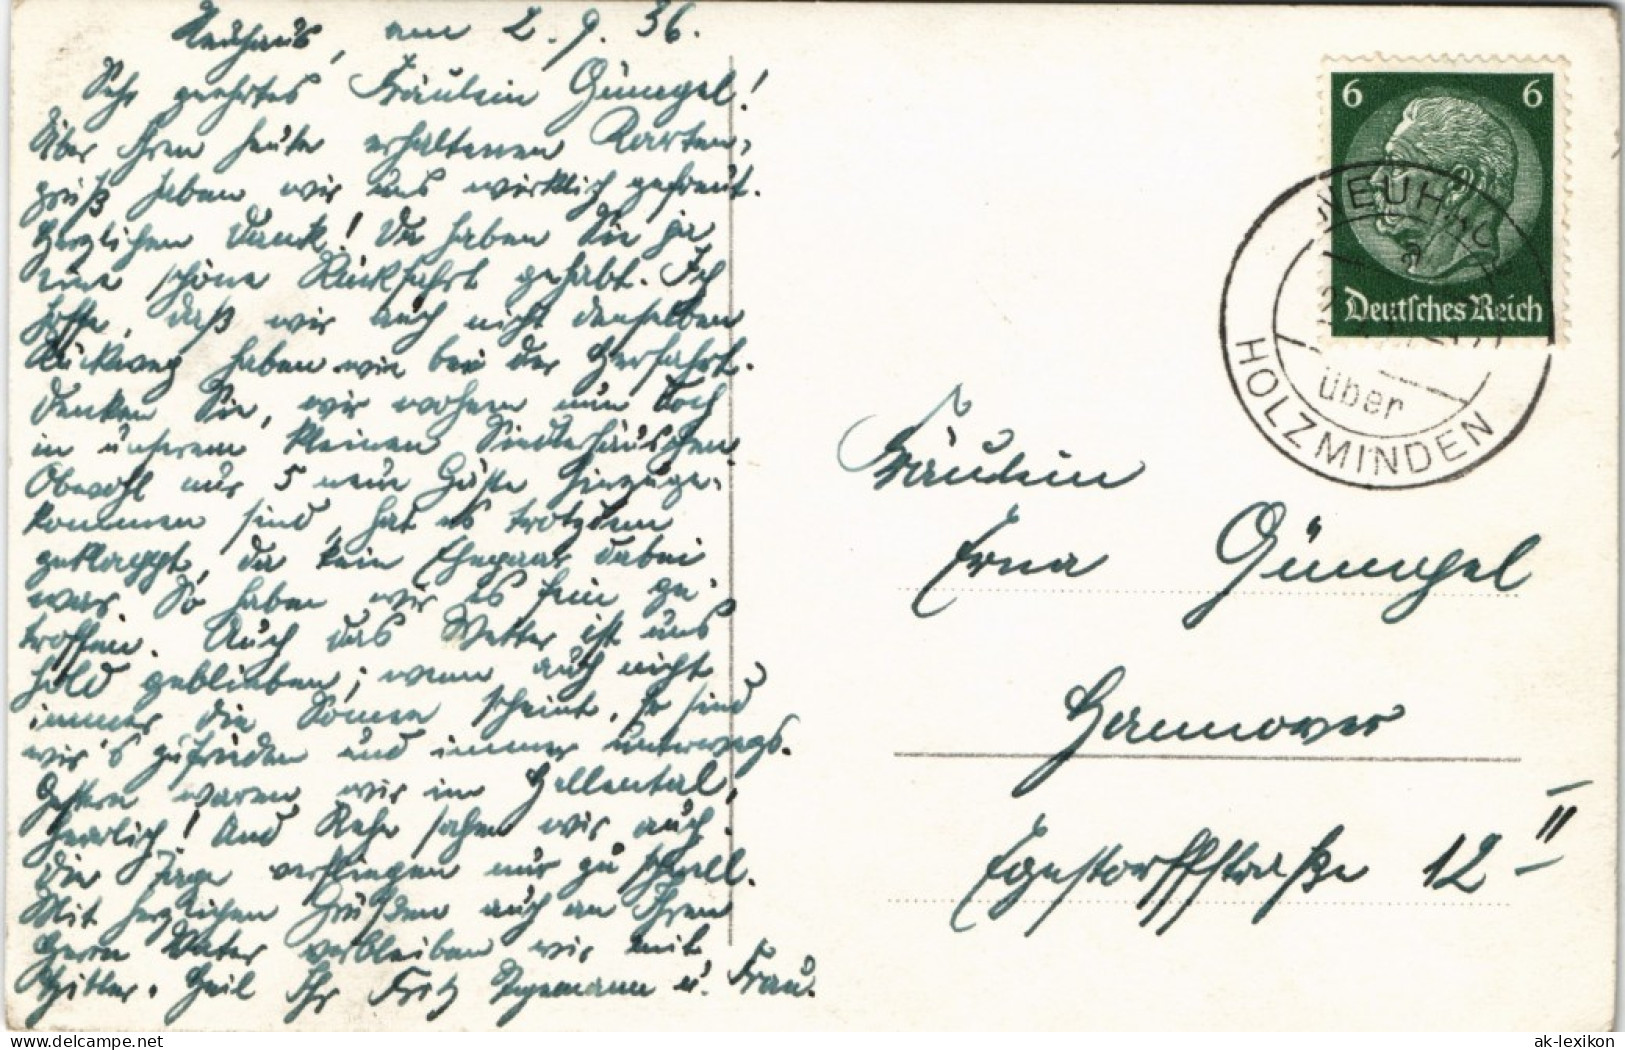 Neuhaus, am 2.9.36.
Sehr geehrtes Fräulein Gümpel!
Über Ihren heute erhaltenen Karten-
gruß haben wir uns wirklich gefreut.
Herzlichen Dank! Da haben Sie ja
eine schöne Rückfahrt gehabt. Ich
hoffe, daß wir auch nicht denselben
Rückweg haben wie bei der Herfahrt.
Denken Sie, wir wohnen nun doch
in unserem kleinen Siedlerhäuschen.
Obwohl nur 5 neue Gäste hinzuge-
kommen sind, hat es trotzdem
geklappt, da kein Ehepaar dabei
war. So haben wir es fein ge-
troffen. Auch das Wetter ist uns
hold geblieben; wenn auch nicht
immer die Sonne scheint, so sind
wir's zufrieden und immer unterwegs.
Gestern waren wir im Hellental,
herrlich! Und Rehe sahen wir auch.
Die Tage verfliegen nur zu schnell.
Mit herzlichen Grüßen auch an Ihren
Herrn Vater verbleiben wir mit
Hitler-Heil Ihr Fritz u. Frau.
6 6
Deutsches Reich
NEUHAUS
über
HOLZMINDEN
Fräulein
Erna Gümpel
Hannover
Egestorffstraße 12 II
© oldthing.de
ak-lexikon